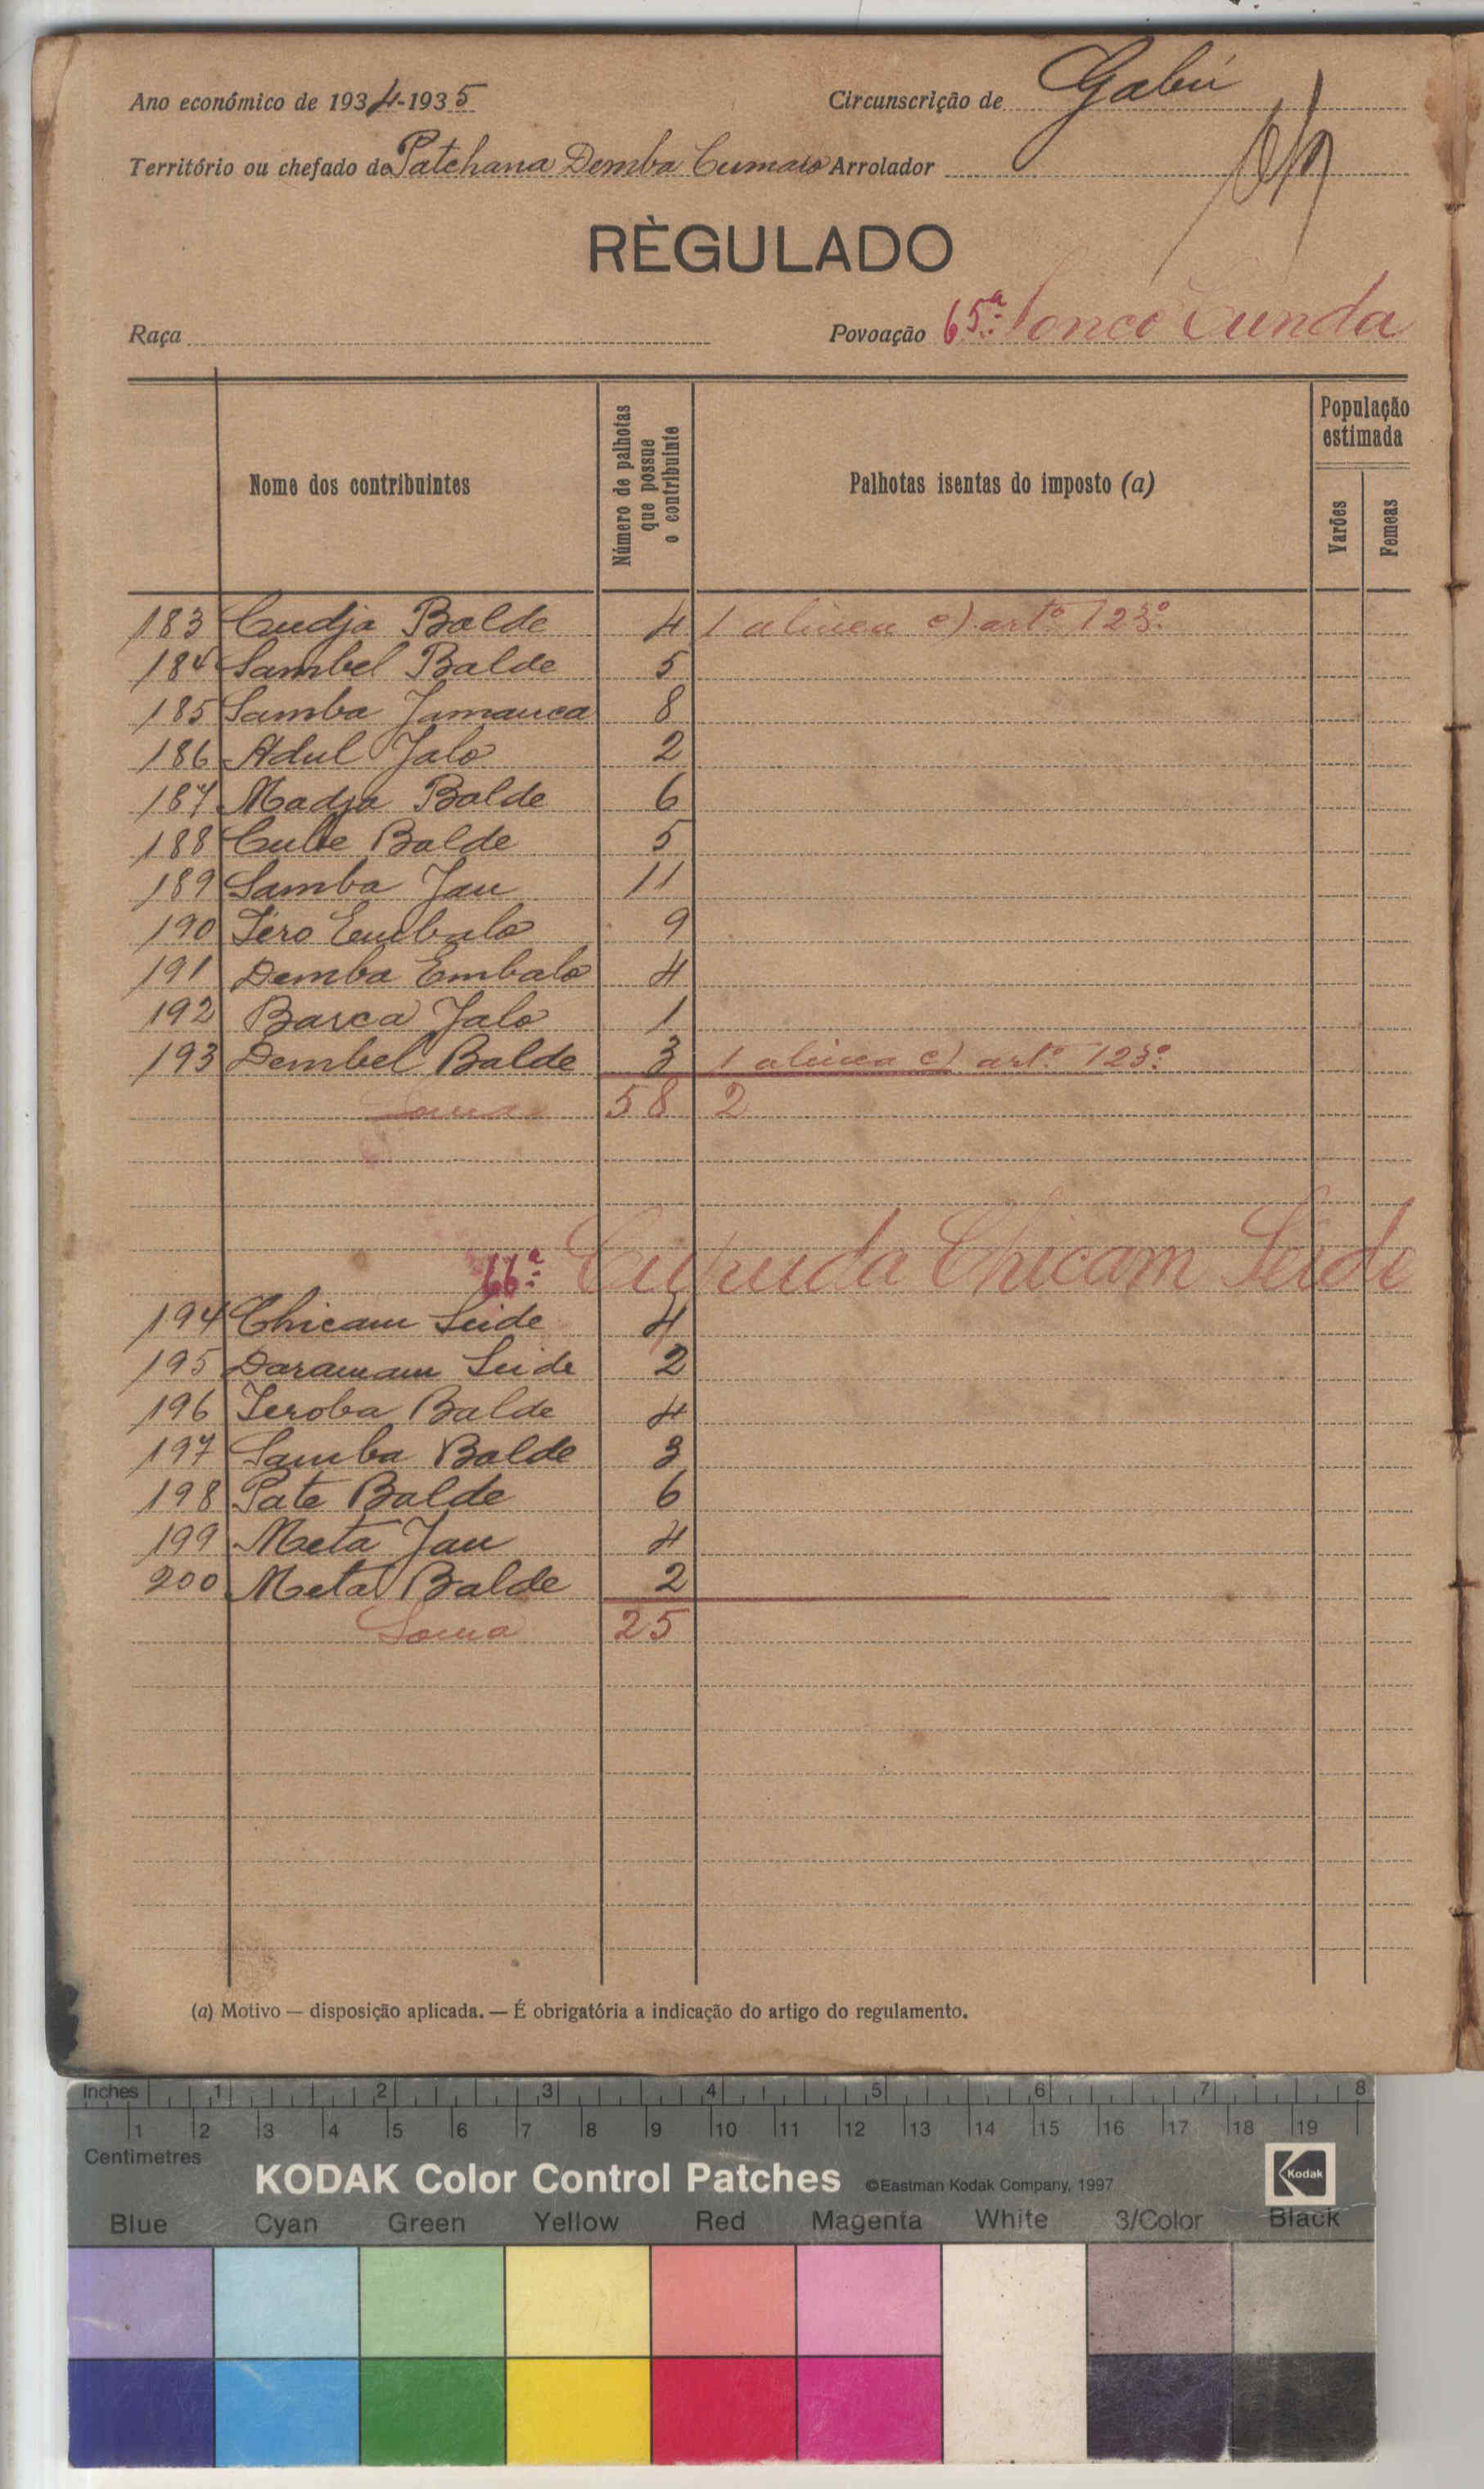 Ano económico de 1934-1935
Circunscrição de Gabú
Território ou chefado de Patchana Demba Cumaio Arrolador
RÈGULADO
Raça
Povoação 65ª Sonco Cunda
Nome dos contribuintes
Número de palhotas que possue o contribuinte
Palhotas isentas do imposto (a)
População estimada
Varões
Femeas
183 Cudja Balde 4 1 alinea c) artº 123º
184 Sambel Balde 5
185 Samba Jamanca 8
186 Adul Jalo 2
187 Madja Balde 6
188 Cube Balde 5
189 Samba Jau 11
190 Téro Embalo 9
191 Demba Embalo 4
192 Barca Jalo 1
193 Dembel Balde 3 1 alinea c) artº 123º
Soma 58 2
66ª Chicam Seide
194 Chicam Seide 4
195 Daramam Seide 2
196 Teroba Balde 4
197 Samba Balde 3
198 Pate Balde 6
199 Meta Jau 4
200 Meta Balde 2
Soma 25
(a) Motivo — disposição aplicada. — É obrigatória a indicação do artigo do regulamento.
Inches 1 2 3 4 5 6 7 8
1 2 3 4 5 6 7 8 9 10 11 12 13 14 15 16 17 18 19
Centimetres
KODAK Color Control Patches ©Eastman Kodak Company, 1997 Kodak
Blue Cyan Green Yellow Red Magenta White 3/Color Black